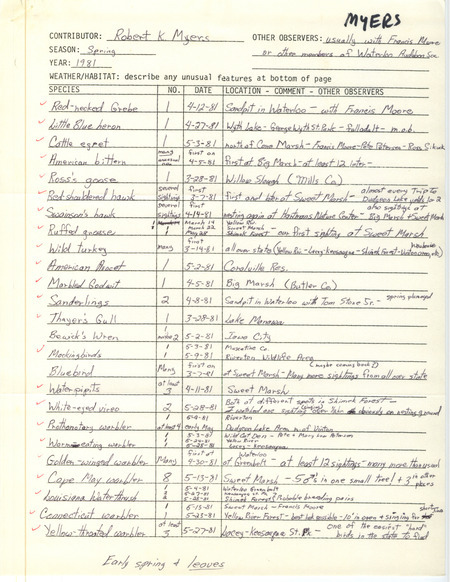 MYERS
CONTRIBUTOR: Robert K. Myers OTHER OBSERVERS: usually with Francis Moore
SEASON: Spring or other members of Waterloo Audubon Soc
YEAR: 1981
WEATHER/HABITAT: describe any unusual features at bottom of page
SPECIES NO. DATE LOCATION - COMMENT - OTHER OBSERVERS
Red-necked Grebe 1 4-12-81 Sandpit in Waterloo - with Francis Moore
Little Blue heron 1 4-27-81 Wyth Lake - George Wyth St. Park - full adult - m.ob.
Cattle egret 1 5-3-81 north of Cone Marsh - Francis Moore - Pete Petersen - Ross Silcock
American bittern many first on 4-5-81 first at Big Marsh - at least 12 later
Ross's goose 1 3-28-81 Willow Slough (Mills Co)
Red-shouldered hawk several sightings first 3-7-81 first and later at Sweet Marsh - almost every trip to Dudgeon Lake
Swainson's hawk sightings 4-14-81 nesting again at Hartman Nature Center - Big Marsh + Sweet Marsh
Ruffed grouse March 22 May 28 Yellow River Sweet Marsh Shimek Forest - our first sighting at Sweet Marsh
Wild turkey many first 3-14-81 all over state (Yellow Riv - Lacey Keosauqua - Shimek Forest
American Avocet 1 5-2-81 Coralville Res.
Marbled Godwit 1 4-5-81 Big Marsh (Butler Co)
Sanderlings 2 4-8-81 Sandpit in Waterloo with Tom Stone Sr. - spring plumaged
Thayer's Gull 1 3-28-81 Lake Manawa
Bewick's Wren 1 5-2-81 Iowa City
Mockingbirds 1 5-9-81 Muscatine Co.
1 5-9-81 Riverton Wildlife Area
Bluebird Many first on 3-7-81 at Sweet Marsh - Many more sightings from all over state (maybe coming back!)
Water pipits at least 3 4-11-81 Sweet Marsh
White-eyed vireo 2 5-28-81 Both at different spots in Shimek Forest -
Prothonotary warbler at least 4 early May Dudgeon Lake Area n. of Vinton
Worm-eating warbler 5-3-81 Wild Cat Den - Pete + Mary Lou Petersen
Yellow River
5-28-81 Lacey - Keosauqua
Golden-winged warbler Many first at 4-30-81 at Greenbelt - Waterloo at least 12 sightings - many more than usual
Cape May warbler 8 5-13-81 Sweet Marsh - 5 ♂'s in one small tree + 3 in other places
Louisiana Waterthrush 5-4-81 Waterloo Greenbelt
Shimek Forest - Probable breeding pairs
Connecticut warbler 1 5-13-81 Sweet Marsh - Francis Moore
1 5-23-81 Yellow River Forest - best look possible - 10' in open + singing for
Yellow-throated warbler at least 3 5-27-81 Lacey - Keosauqua St. Pk - one of the easiest "hard" birds in the state to find
Early spring + leaves